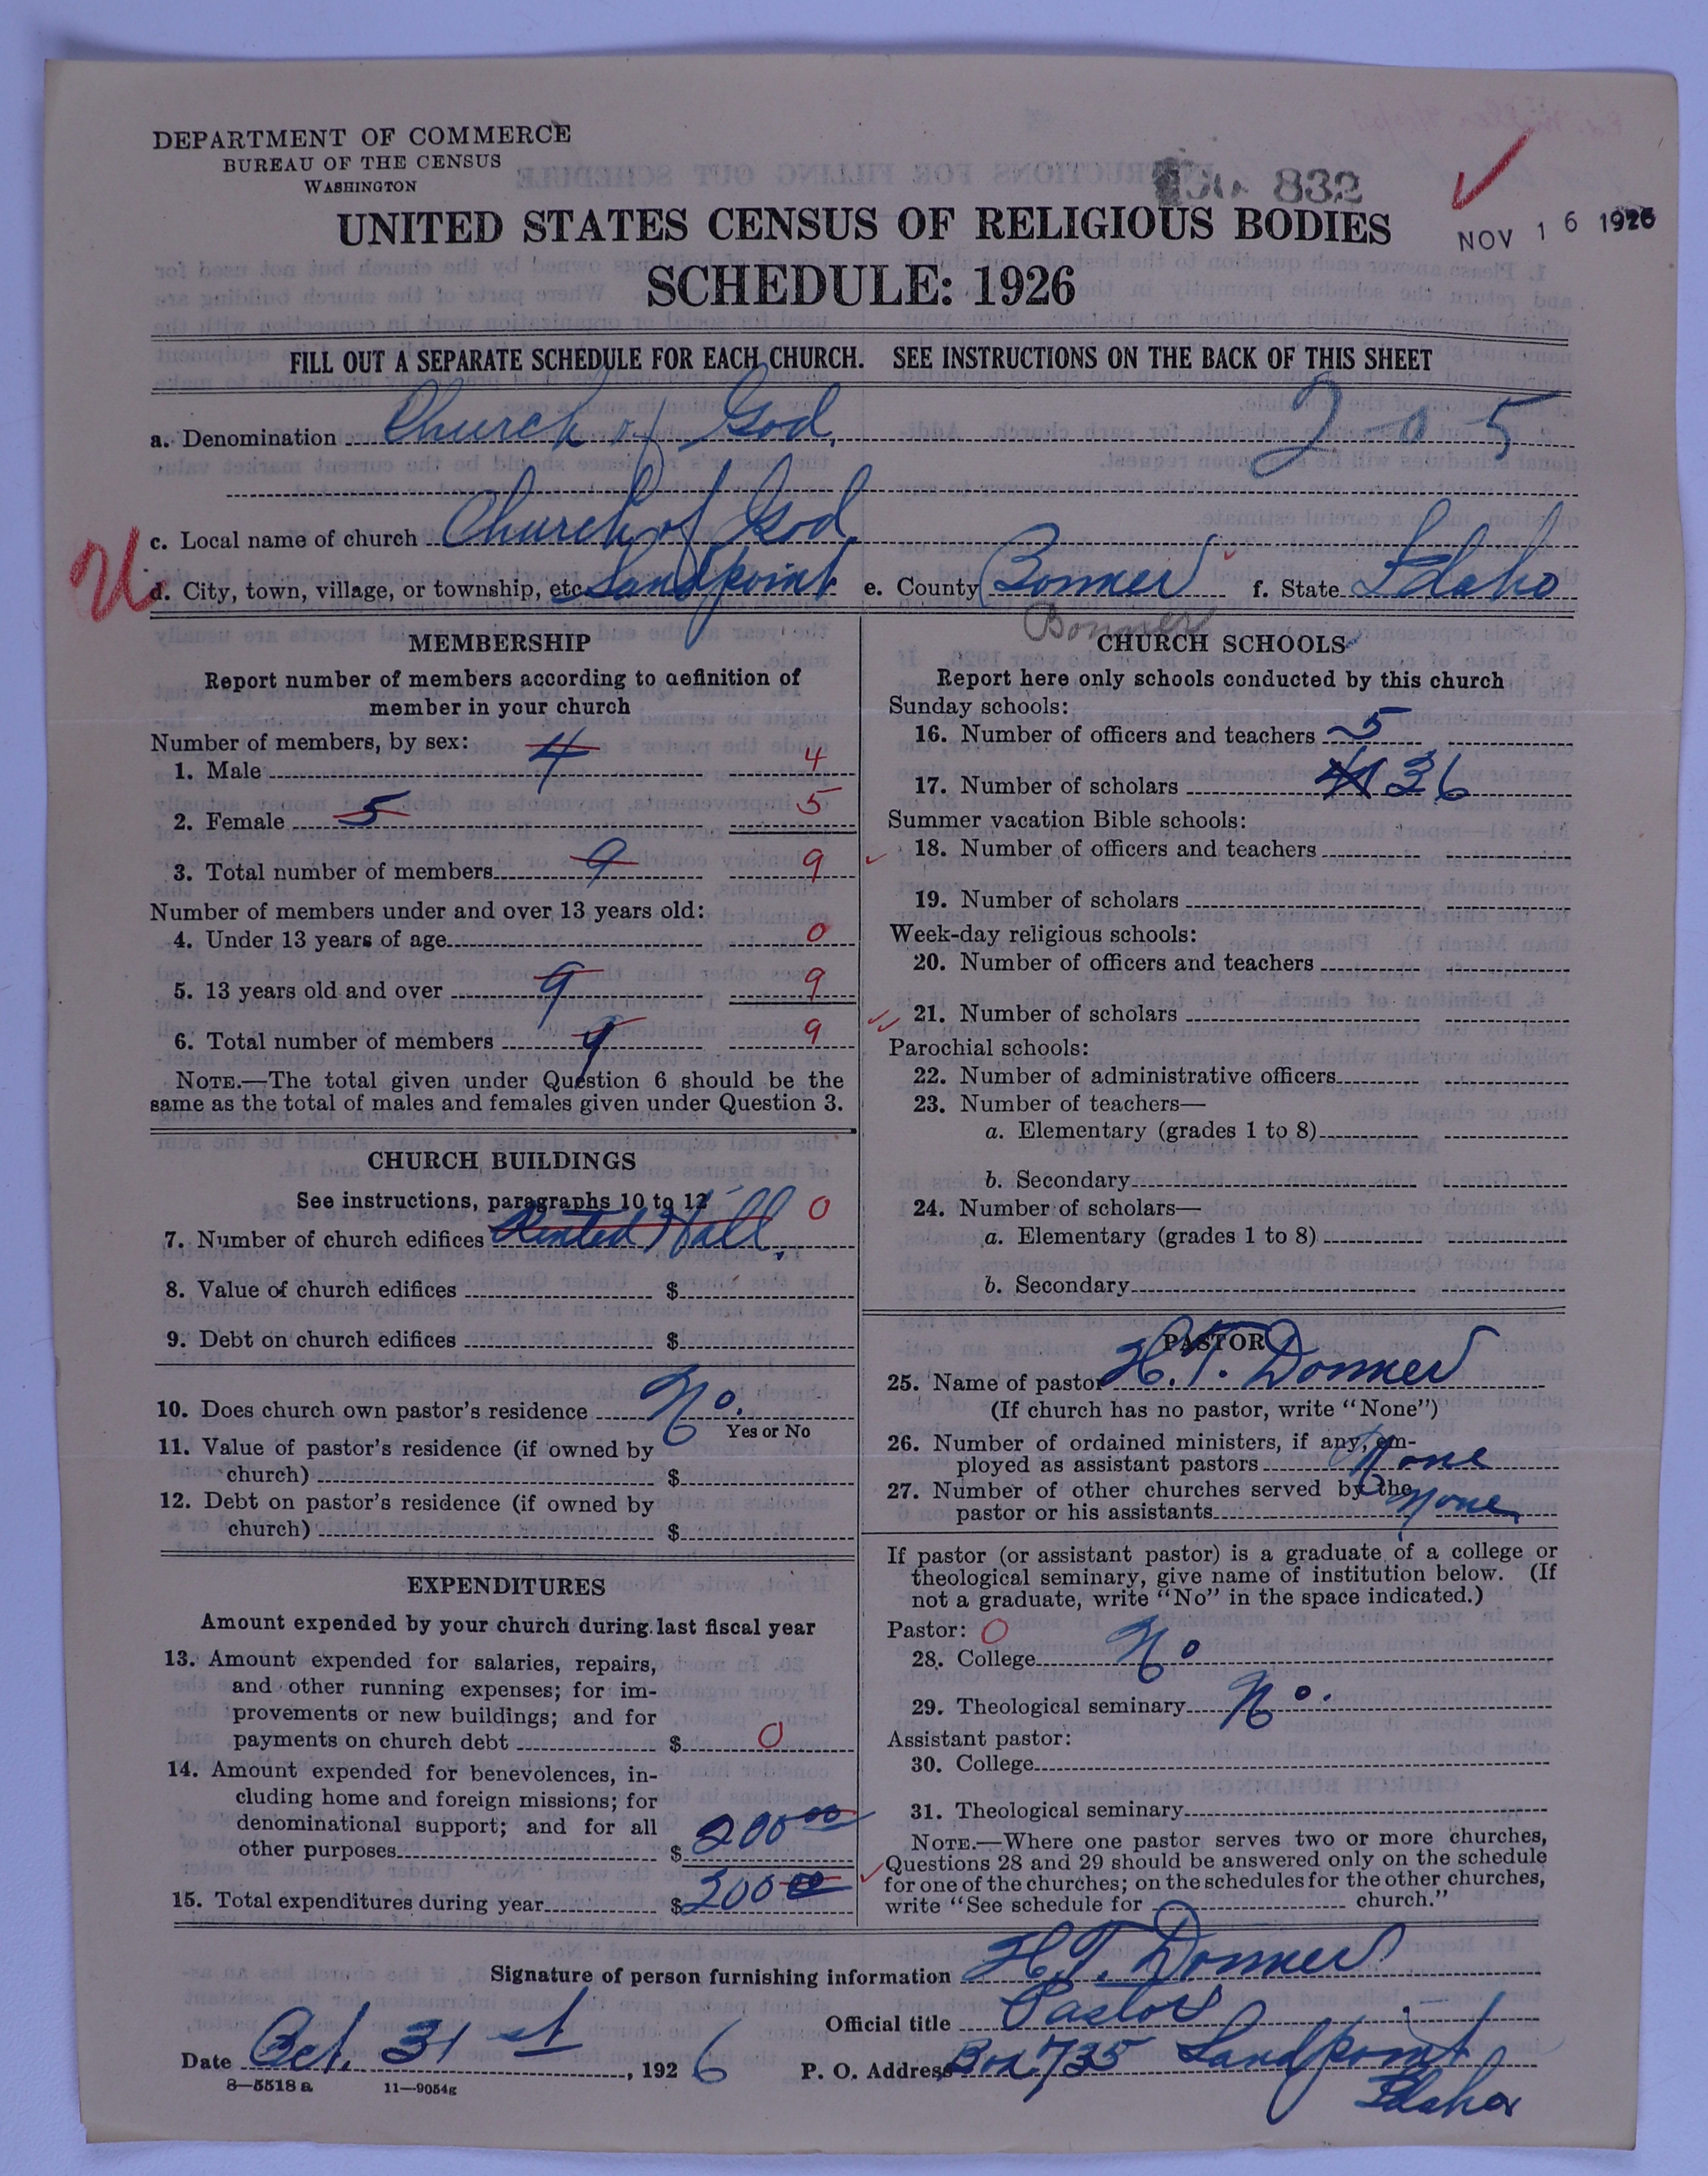 DEPARTMENT OF COMMERCE
BUREAU OF THE CENSUS
WASHINGTON
832
NOV 16 1926
UNITED STATES CENSUS OF RELIGIOUS BODIES
SCHEDULE: 1926
FILL OUT A SEPARATE SCHEDULE FOR EACH CHURCH. SEE INSTRUCTIONS ON THE BACK OF THIS SHEET
a. Denomination Church of God, 2-0 5
c. Local name of church Church of God
d. City, town, village, or township, etc. Sandpoint e. County Bonner f. State Idaho
Bonner
MEMBERSHIP
Report number of members according to definition of
member in your church
Number of members, by sex:
1. Male 4 4
2. Female 5 5
3. Total number of members 9 9
Number of members under and over 13 years old:
4. Under 13 years of age 0
5. 13 years old and over 9 9
6. Total number of members 9 9
NOTE.—The total given under Question 6 should be the
same as the total of males and females given under Question 3.
CHURCH BUILDINGS
See instructions, paragraphs 10 to 12
7. Number of church edifices Rented Hall. 0
8. Value of church edifices $
9. Debt on church edifices $
10. Does church own pastor's residence No.
Yes or No
11. Value of pastor's residence (if owned by
church) $
12. Debt on pastor's residence (if owned by
church) $
EXPENDITURES
Amount expended by your church during last fiscal year
13. Amount expended for salaries, repairs,
and other running expenses; for im-
provements or new buildings; and for
payments on church debt $ 0
14. Amount expended for benevolences, in-
cluding home and foreign missions; for
denominational support; and for all
other purposes $ 200 00
15. Total expenditures during year $ 200 00
CHURCH SCHOOLS
Report here only schools conducted by this church
Sunday schools:
16. Number of officers and teachers 5
17. Number of scholars 36
Summer vacation Bible schools:
18. Number of officers and teachers
19. Number of scholars
Week-day religious schools:
20. Number of officers and teachers
21. Number of scholars
Parochial schools:
22. Number of administrative officers
23. Number of teachers—
a. Elementary (grades 1 to 8)
b. Secondary
24. Number of scholars—
a. Elementary (grades 1 to 8)
b. Secondary
PASTOR
25. Name of pastor H. T. Donner
(If church has no pastor, write "None")
26. Number of ordained ministers, if any, em-
ployed as assistant pastors None
27. Number of other churches served by the
pastor or his assistants None
If pastor (or assistant pastor) is a graduate of a college or
theological seminary, give name of institution below. (If
not a graduate, write "No" in the space indicated.)
Pastor: 0
28. College No
29. Theological seminary No.
Assistant pastor:
30. College
31. Theological seminary
NOTE.—Where one pastor serves two or more churches,
Questions 28 and 29 should be answered only on the schedule
for one of the churches; on the schedules for the other churches,
write "See schedule for church."
Signature of person furnishing information H. T. Donner
Official title Pastor
Date Oct. 31 st, 1926 P. O. Address Box 735 Sandpoint
Idaho
8—5518 a 11—9054g